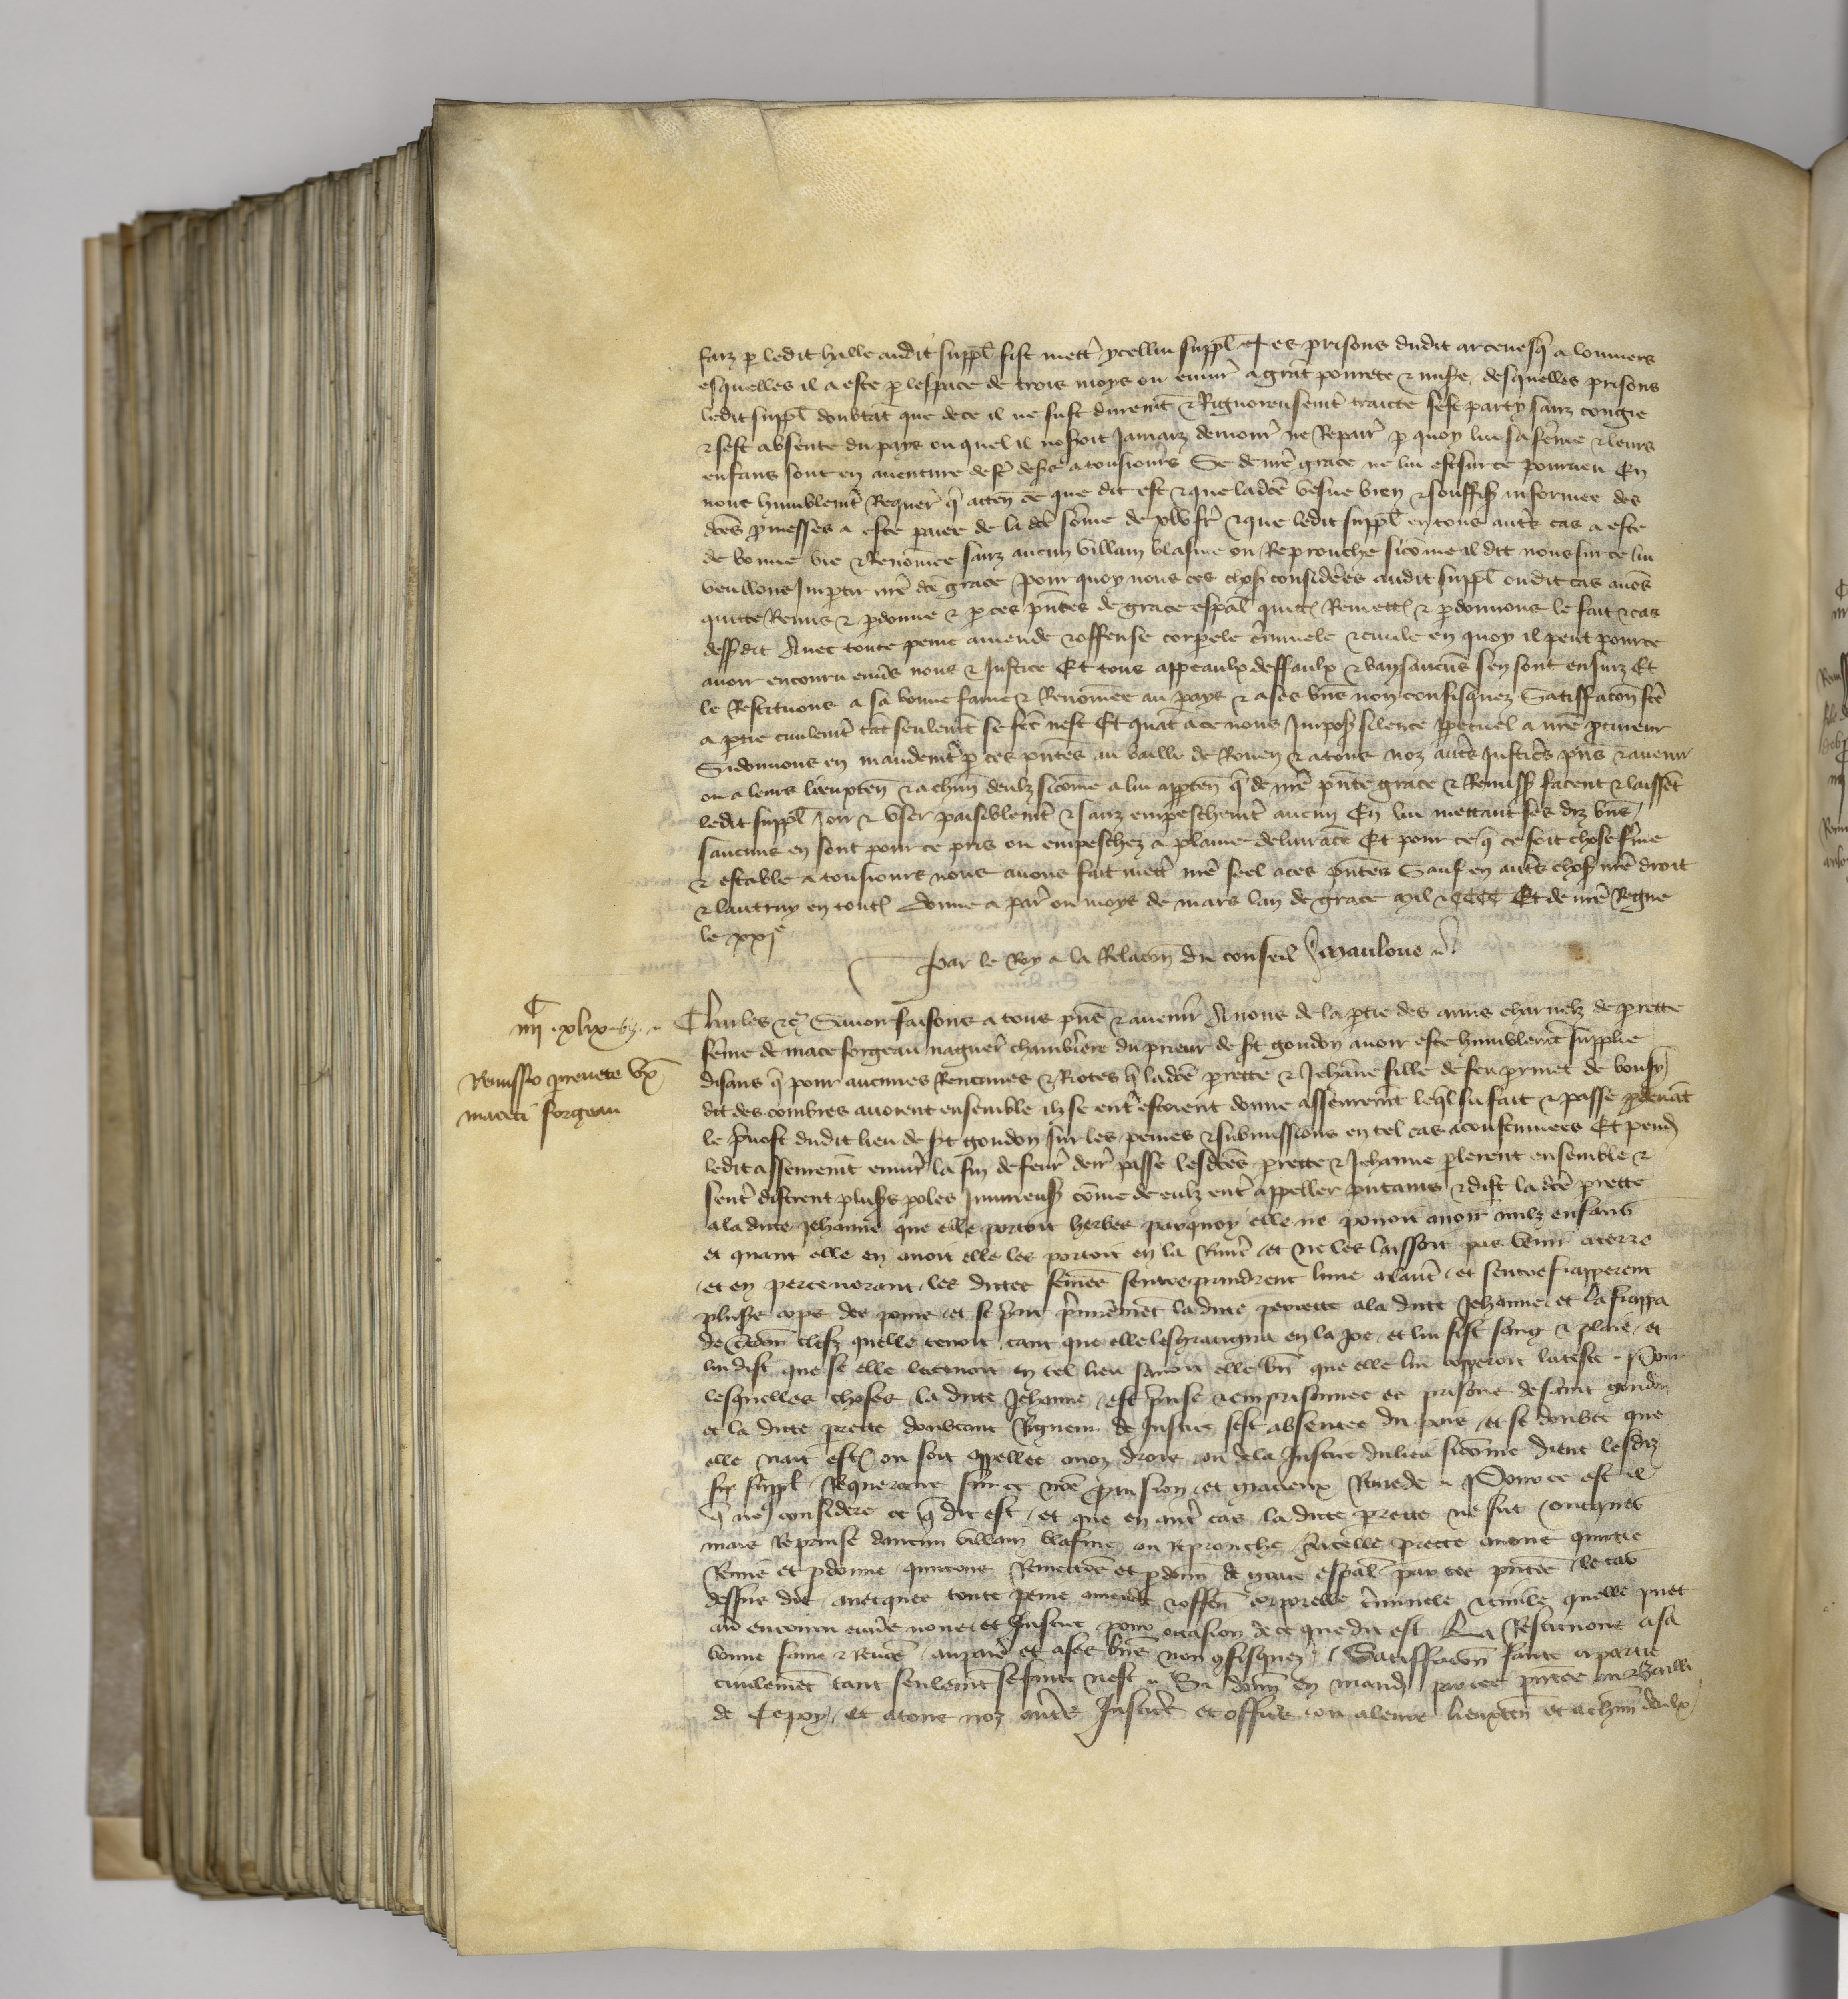 faiz p ledit halle audit suppl fist mettr ycellui suppl es prisons dudit arcevesq a louviers
esquelles il a este p lespace de trois moys ou envir a grāt povrete & mise desquelles prisons
ledit suppl doubtāt que de ce il ne fust duremt & Rigoreusemt traictie sest party sanz congie
& sest absente du pays ou quel il noseroit Jamaiz demour ne Repair p quoy lui sa feme & leurs
enfans sont en aventure destr desers a tousiours Se de nre grace ne lui est sur ce pourveu En
nous humblemt Requer q attendu ce que dit est & que ladce vesve bien & souffis informee des
dces pmesses a este paiee de la dce some de xlv fr & que ledit suppl en tous autrs cas a este
de bonne vie & Renomee sanz aucun villain blasme ou Reprouche sicome il dit nous sur ce lui
veullons Impartir nre dce grace Pour quoy nous ces chos considerees audit suppl oudit cas avos
quitte Remis & pdonne & p ces pntes de grace espal quitt Remett & pdonnons le fait & cas
dessdit Avec toute peine amende & offense corpele cminele & civile en quoy il peut pour ce
avoir encouru envs nous & Justice Et tous appeaulx deffaulx & ban saucus sen sont ensuiz Et
le Restituons a sa bonne fame & Renomee au pays & a ses bns non confisquez Satisffacon fce
a ptie civilemt tāt seulemt se fce nest Et quāt a ce nous Imposs silence ppetuel a nre pcureur
Si donnons en mandemt p ces pntes au bailli de Rouen & a tous noz autrs Justicrs pns & avenir
ou a leurs lieuxten & a chun deulz sicome a lui apptendra q de nre pnte grace & Remiss facent & laissēt
ledit suppl Joir & user paisiblemt & sanz empeschemt aucun En lui mettant ses diz bns
saucuns en sont pour ce pris ou empeschez a plaine delivrāce Et pour ce q ce soit chose ferme
& estable a tousiours nous avons fait mettr nre seel a ces pntes Sauf en autrs chos nre droit
& lautruy en tout Donne a par ou moys de mars lan de grace mil CCCC Et de nre Regne
le xxje
Par le Roy a la Relacon du conseil Mauloue
iiijC xlix
Charles &c Savoir faisons a tous pns & avenir A nous de la ptie des amis charnelz de prette
Remissio perrete ux
macei forgeau
feme de mace forgeau naguer chambriere du prieur de st gondon avoir este humblemt supplie
disans q pour aucunes Rencunes & Riotes q ladce prette & Jehanne fille de feu prinet de
dit des combres avoient ensemble ilz se entrestoient donne asseuremt leql fu fait & passe pdevāt
le pvost dudit lieu de st gondon sur les peines & submissions en tel cas acoustumees Et pend
ledit asseuremt envir la fin de fevr derr passe lesdces prette & Jehanne plerent ensemble &
sentr distrent pluss poles Injurieus come de eulz entr appeller putains & dist la dce prette
a la dicte Jehanne que elle portoit herbes parquoy elle ne povoit avoir nulz enfans
et quant elle en avoit elle les portoit en la Rivre et ne les laissoit pas venir a terre
et en perceverant les dictes femes sentreprindrent lune a lautr et sentrefrapperent
pluss cops des poins et se print pmieremēt la dicte perrette a la dicte Jehanne et la frappa
de clefz quelle tenoit tant que elle lesgratigna en la Joe et lui fist sang & plaie et
lui dist que se elle la tenoit en tel lieu savoit elle bn que elle lui copperoit la teste Pour
lesquelles choses la dicte Jehanne est prinse & emprisonnee es prisons de saint gondon
et la dicte prette doubtant Rigueur de Justice sest absentee du pais et se doubte que
elle nait este ou soit appellee a noz drois ou de la Justice du lieu sicome dient lesdiz
suppl Requerans sur ce nre pvision et gracieux Remede Pour ce est il
q nos considere ce q dit est et que en autrs cas la dicte prette ne fut oncques
mais Reprinse daucun villain blasme ou reprouche A icelle prette avons quictie
Remis et pdonne quictons Remettons et pdonn de grace espal par ces pntes le cas
dessus dit avecques toute peine amende & offense corporelle criminele & civile quelle puet
avoir encouru envs nous et Justice pour occasion de ce que dit est La Restituons a sa
bonne fame & Renomee au pais et a ses bns non confisquez Satisffacon faicte a partie
civilemēt tant seulemt se faicte nest Si donn en mand par ces pntes au Bailli
de Cepoy et a tous noz autrs Justicrs et officrs ou a leurs lieuxten et a chun deulx